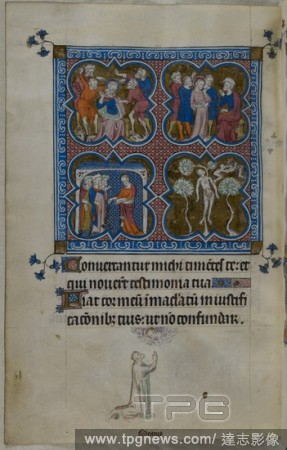 Convertantur michi timentes te: et
qui noverunt testimonia tua
Fiat cor meum immaculatum in iustifi
cationibus tuis: ut non confundar.
TPG
www.tpgnews.com / 達志影像